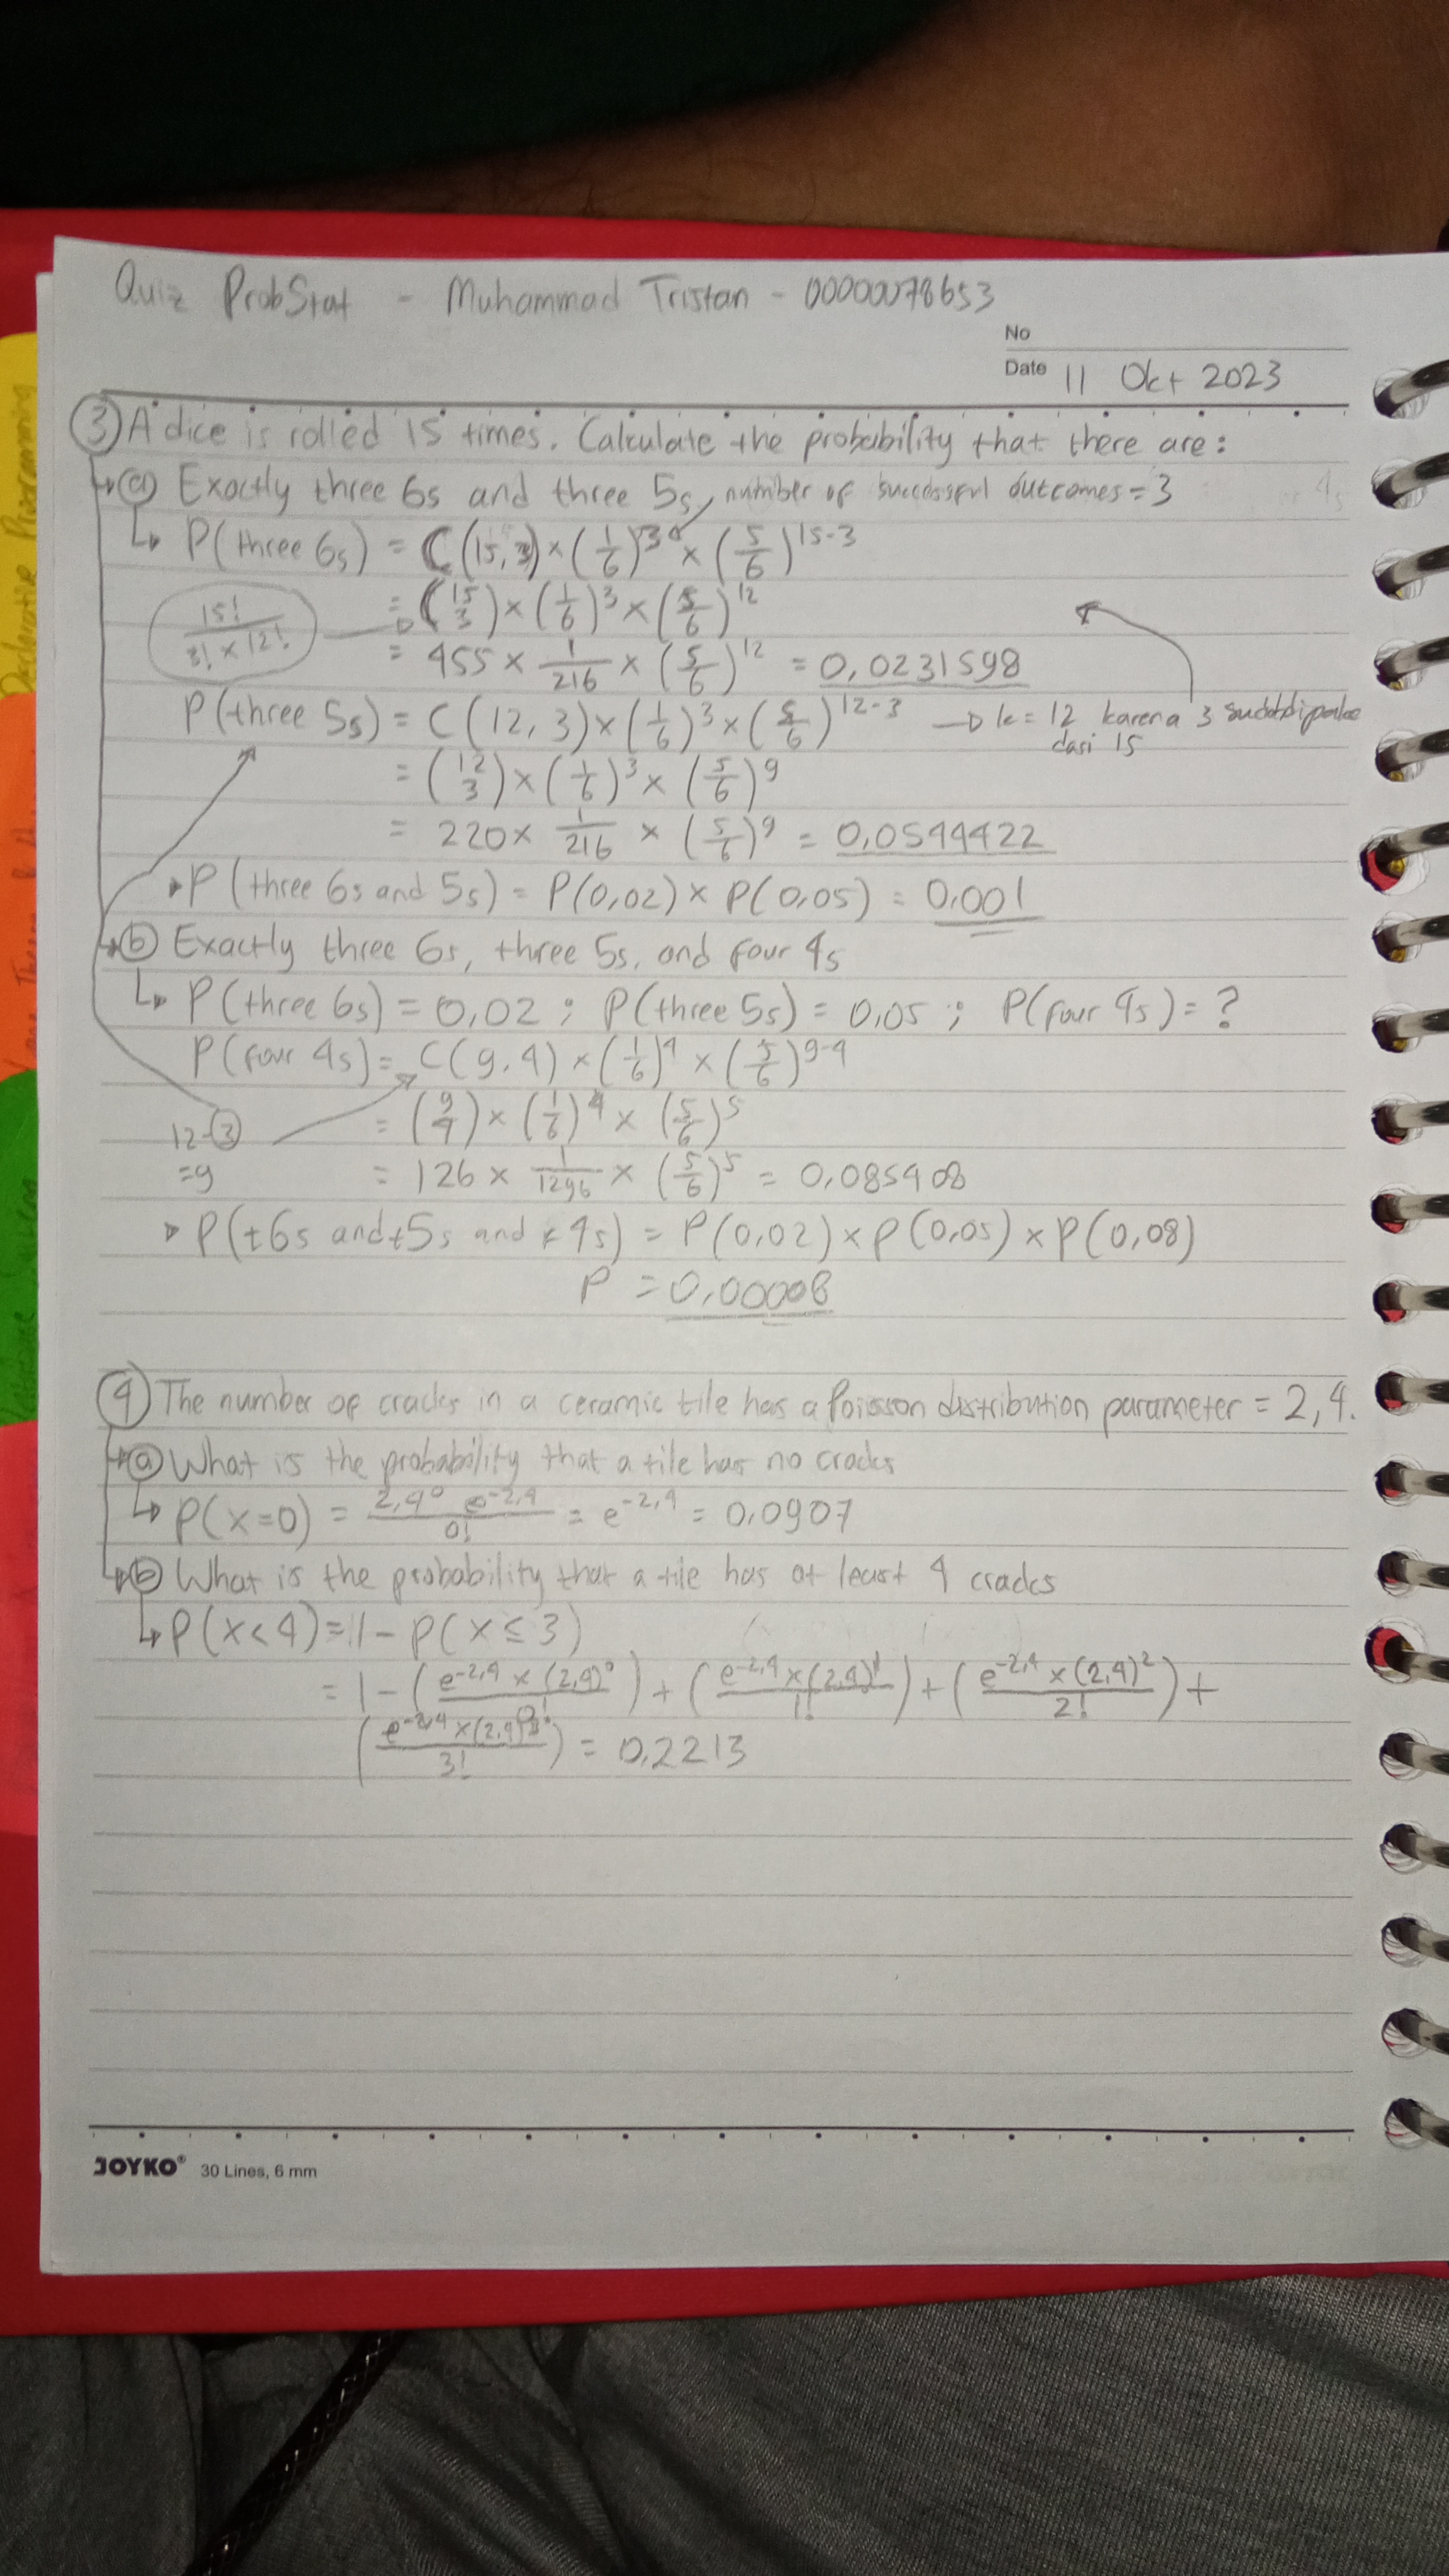 Quiz ProbStat - Muhammad Tristan - 00000078653
No
Date 11 Okt 2023
③ A dice is rolled 15 times. Calculate the probability that there are:
ⓐ Exactly three 6s and three 5s, number of successful outcomes = 3
↳ P(three 6s) = C(15, 3) × (1/6)^3 × (5/6)^15-3
= (15 3) × (1/6)^3 × (5/6)^12
15! / 3! × 12!
= 455 × 1/216 × (5/6)^12 = 0,0231598
P(three 5s) = C(12, 3) × (1/6)^3 × (5/6)^12-3 → k = 12 karena 3 sudah
dari 15
= (12 3) × (1/6)^3 × (5/6)^9
= 220 × 1/216 × (5/6)^9 = 0,0544422
P(three 6s and 5s) = P(0,02) × P(0,05) = 0,001
ⓑ Exactly three 6s, three 5s, and four 4s
↳ P(three 6s) = 0,02 ; P(three 5s) = 0,05 ; P(four 4s) = ?
P(four 4s) = C(9, 4) × (1/6)^4 × (5/6)^9-4
= (9 4) × (1/6)^4 × (5/6)^5
12-③
=9
= 126 × 1/1296 × (5/6)^5 = 0,085408
P(t6s and t5s and f4s) = P(0,02) × P(0,05) × P(0,08)
P = 0,00008
④ The number of cracks in a ceramic tile has a Poisson distribution parameter = 2,4.
ⓐ What is the probability that a tile has no cracks
↳ P(x=0) = 2,4^0 e^-2,4 / 0! = e^-2,4 = 0,0907
ⓑ What is the probability that a tile has at least 4 cracks
↳ P(x<4) = 1 - P(x ≤ 3)
= 1 - (e^-2,4 × (2,4)^0 / 0!) + (e^-2,4 × (2,4)^1 / 1!) + (e^-2,4 × (2,4)^2 / 2!) +
(e^-2,4 × (2,4)^3 / 3!) = 0,2213
JOYKO® 30 Lines, 6 mm